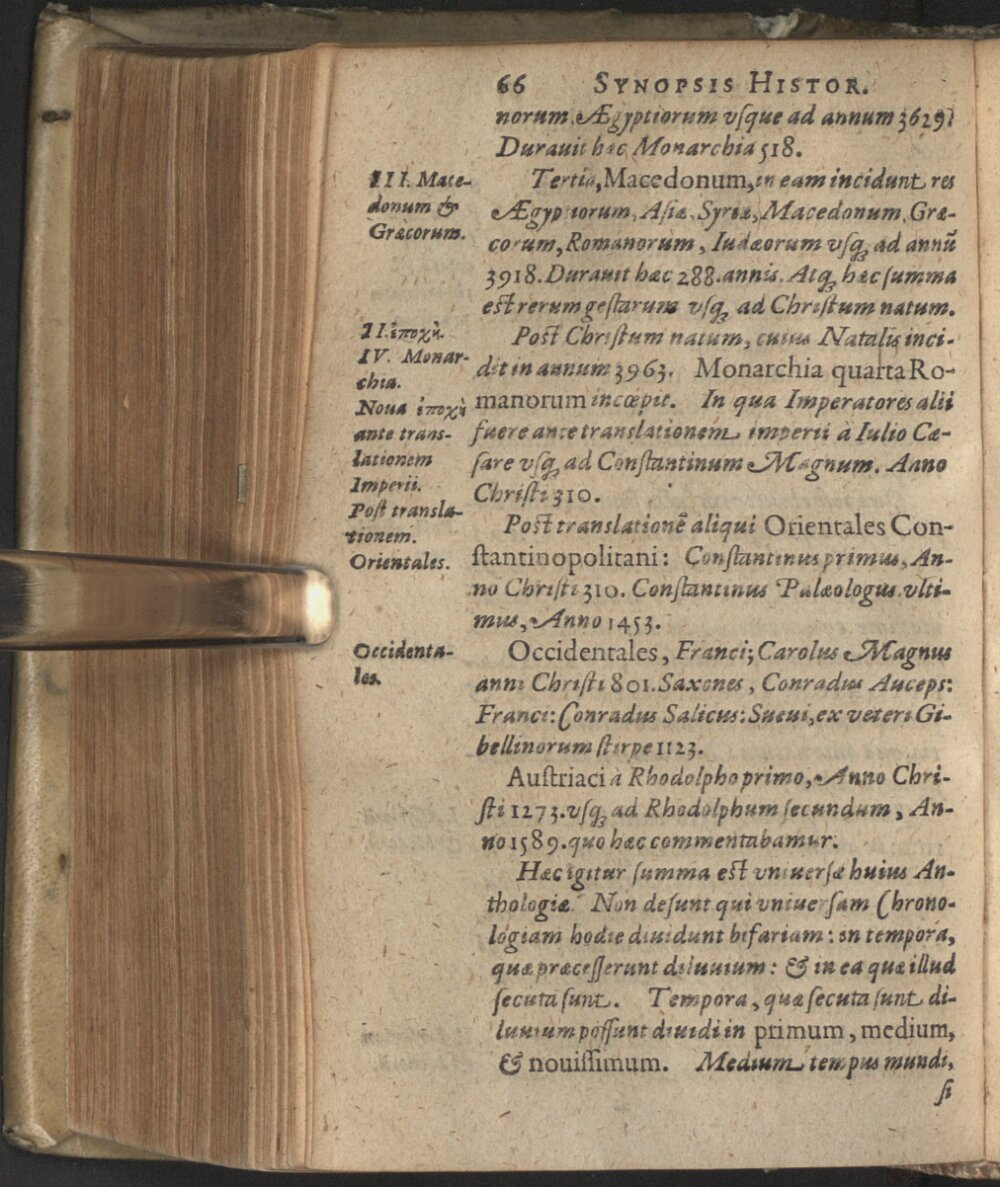 66 SYNOPSIS HISTOR.
norum, Ægyptiorum vſque ad annum 3629?
Durauit hæc Monarchia 518.
III. Mace-
donum &
Græcorum.
Tertia, Macedonum, in eam incidunt res
Ægyptiorum, Aſiæ, Syriæ, Macedonum, Græ-
corum, Romanorum, Iudæorum vſq; ad annũ
3918. Durauit hæc 288. annis. Atq; hæc ſumma
eſt rerum geſtarum vſq; ad Chriſtum natum.
II. ἐποχὴ.
IV. Monar-
chia.
Noua ἐποχὴ
ante trans-
lationem
Imperii.
Poſt transla-
tionem.
Orientales.
Poſt Chriſtum natum, cuius Natalis inci-
dit in annum 3963. Monarchia quarta Ro-
manorum incœpit. In qua Imperatores alii
fuere ante translationem imperii à Iulio Cæ-
ſare vſq; ad Conſtantinum Magnum. Anno
Chriſti 310.
Poſt translationẽ aliqui Orientales Con-
ſtantinopolitani: Conſtantinus primus, An-
no Chriſti 310. Conſtantinus Palæologus vlti-
mus, Anno 1453.
Occidenta-
les.
Occidentales, Franci; Carolus Magnus
anni Chriſti 801. Saxones, Conradus Auceps:
Franci: Conradus Salicus: Sueui, ex veteri Gi-
bellinorum ſtirpe 1123.
Auſtriaci à Rhodolpho primo, Anno Chri-
ſti 1273. vſq; ad Rhodolphum ſecundum, An-
no 1589. quo hæc commentabamur.
Hæc igitur ſumma eſt vniuerſæ huius An-
thologiæ. Non deſunt qui vniuerſam Chrono-
logiam hodie diuidunt bifariam: in tempora,
quæ præceſſerunt diluuium: & in ea quæ illud
ſecuta ſunt. Tempora, quæ ſecuta ſunt di-
luuium poſſunt diuidi in primum, medium,
& nouiſſimum. Medium tempus mundi,
ſi